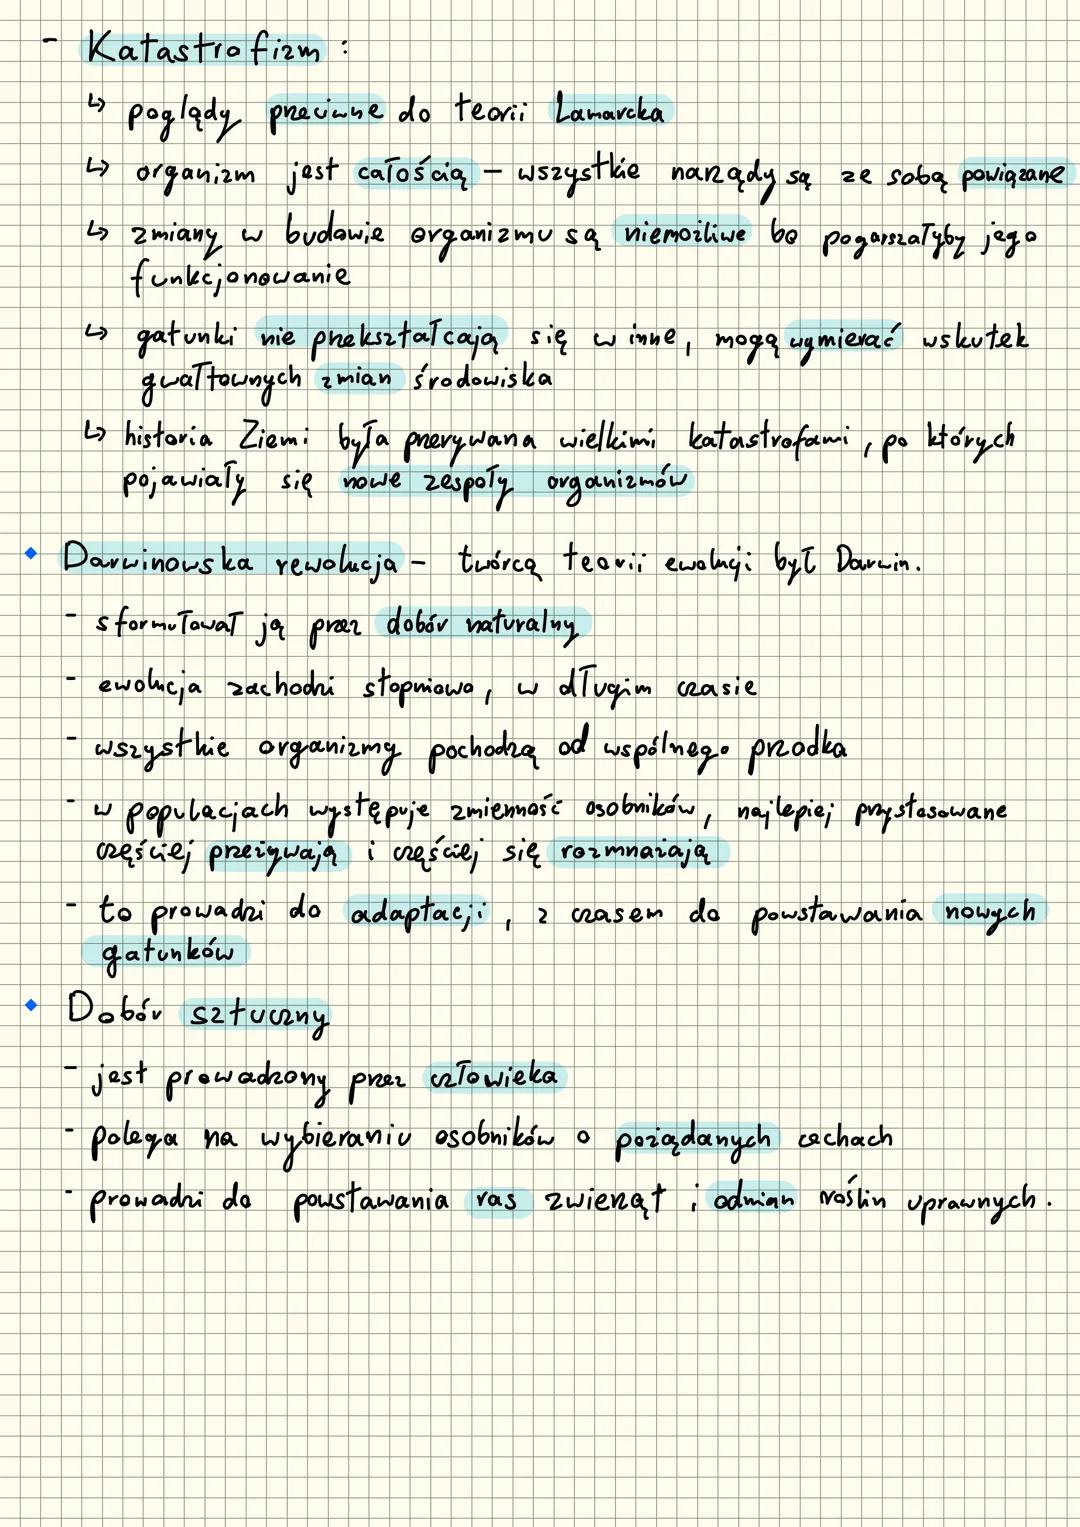 - Katastrofizm :
↳ poglądy przeciwne do teorii Lamarcka
↳ organizm jest całością – wszystkie narządy są ze sobą powiązane
↳ zmiany w budowie organizmu są niemożliwe bo pogarszałyby jego
funkcjonowanie
↳ gatunki nie przekształcają się w inne, mogą wymierać wskutek
gwałtownych zmian środowiska
↳ historia Ziemi była przerywana wielkimi katastrofami, po których
pojawiały się nowe zespoły organizmów
Darwinowska rewolucja – twórcą teorii ewolucji był Darwin.
- sformułował ją przez dobór naturalny
- ewolucja zachodzi stopniowo, w długim czasie
- wszystkie organizmy pochodzą od wspólnego przodka
- w populacjach występuje zmienność osobników, najlepiej przystosowane
częściej przeżywają i częściej się rozmnażają
- to prowadzi do adaptacji, z czasem do powstawania nowych
gatunków
Dobór sztuczny
- jest prowadzony przez człowieka
- polega na wybieraniu osobników o pożądanych cechach
- prowadzi do powstawania ras zwierząt i odmian roślin uprawnych.